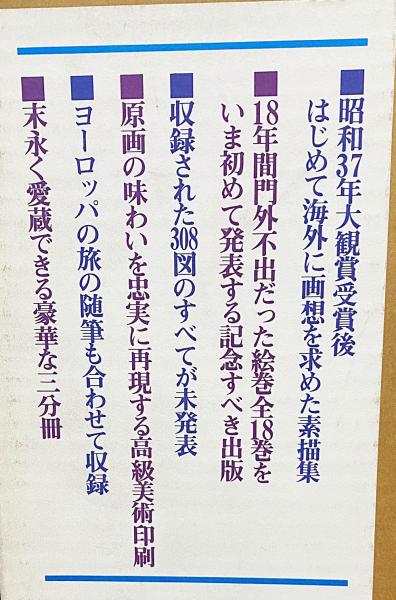 ■昭和37年大観賞受賞後
はじめて海外に画想を求めた素描集
■18年間門外不出だった絵巻全18巻を
いま初めて発表する記念すべき出版
■収録された308図のすべてが未発表
■原画の味わいを忠実に再現する高級美術印刷
■ヨーロッパの旅の随筆も合わせて収録
■末永く愛蔵できる豪華な三分冊